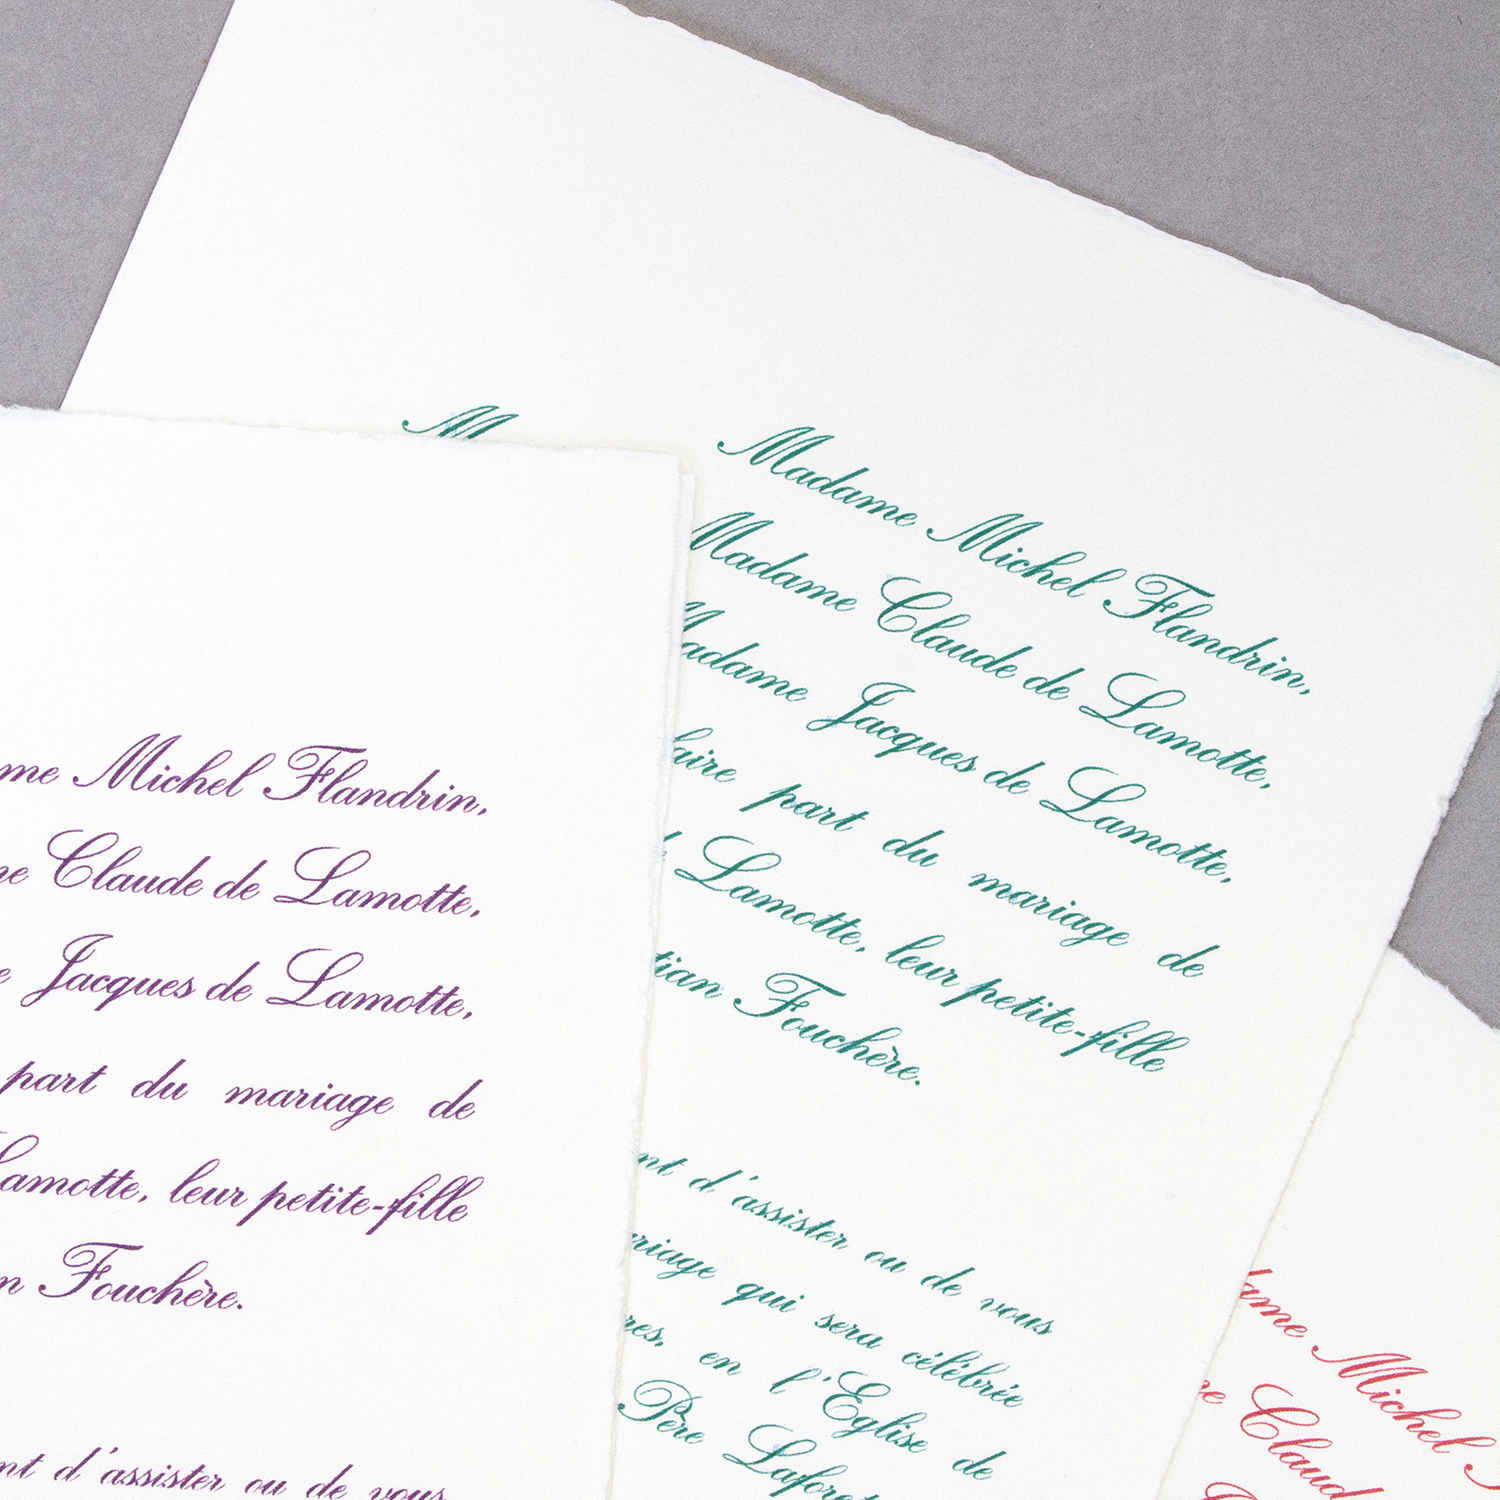 Michel Flandrin,
Claude de Lamotte,
Jacques de Lamotte,
part du mariage de
Lamotte, leur petite-fille
Fouchère.
d'assister ou de vous
Madame Michel Flandrin,
Madame Claude de Lamotte,
Madame Jacques de Lamotte,
faire part du mariage de
Lamotte, leur petite-fille
Fouchère.
d'assister ou de vous
qui sera célébrée
en l'Eglise de
Père
Michel